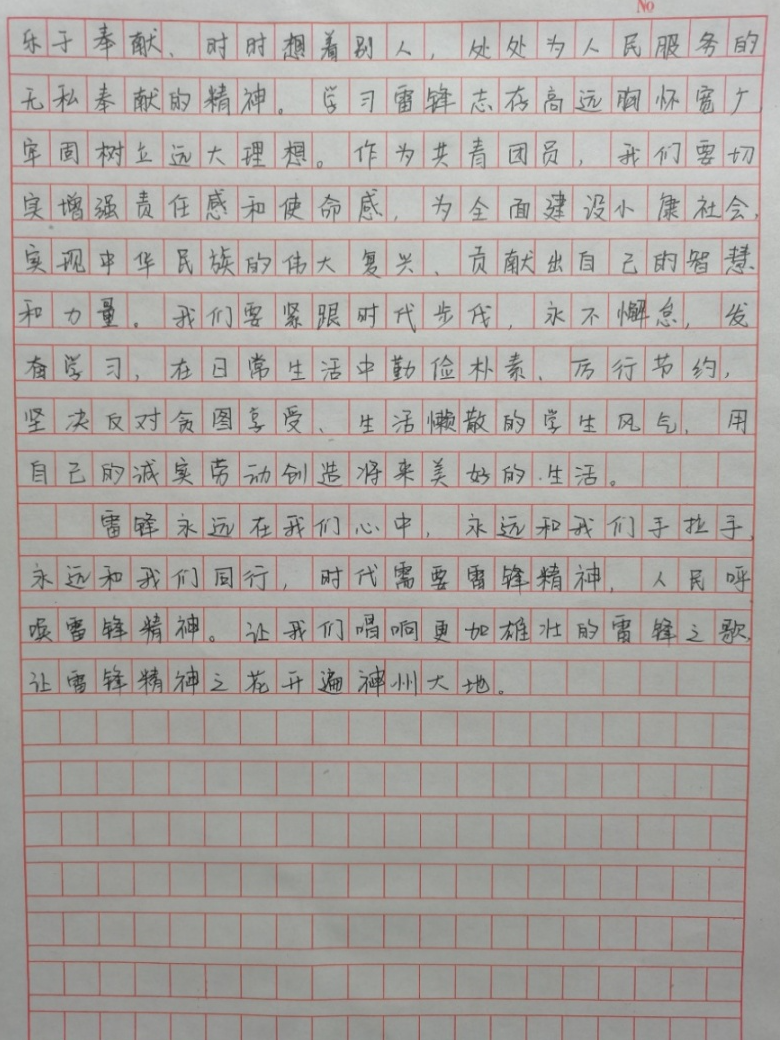 No
乐于奉献、时时想着别人，处处为人民服务的
无私奉献的精神。学习雷锋志存高远胸怀宽广，
牢固树立远大理想。作为共青团员，我们要切
实增强责任感和使命感，为全面建设小康社会，
实现中华民族的伟大复兴、贡献出自己的智慧
和力量。我们要紧跟时代步伐，永不懈怠，发
奋学习，在日常生活中勤俭朴素、厉行节约，
坚决反对贪图享受、生活懒散的学生风气，用
自己的诚实劳动创造将来美好的生活。
雷锋永远在我们心中，永远和我们手拉手，
永远和我们同行，时代需要雷锋精神，人民呼
唤雷锋精神。让我们唱响更加雄壮的雷锋之歌，
让雷锋精神之花开遍神州大地。